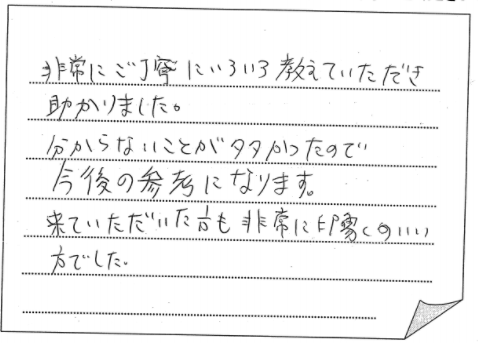 非常にご丁寧にいろいろ教えていただき
助かりました。
分からないことが多かったので
今後の参考になります。
来ていただいた方も非常に印象のいい
方でした。